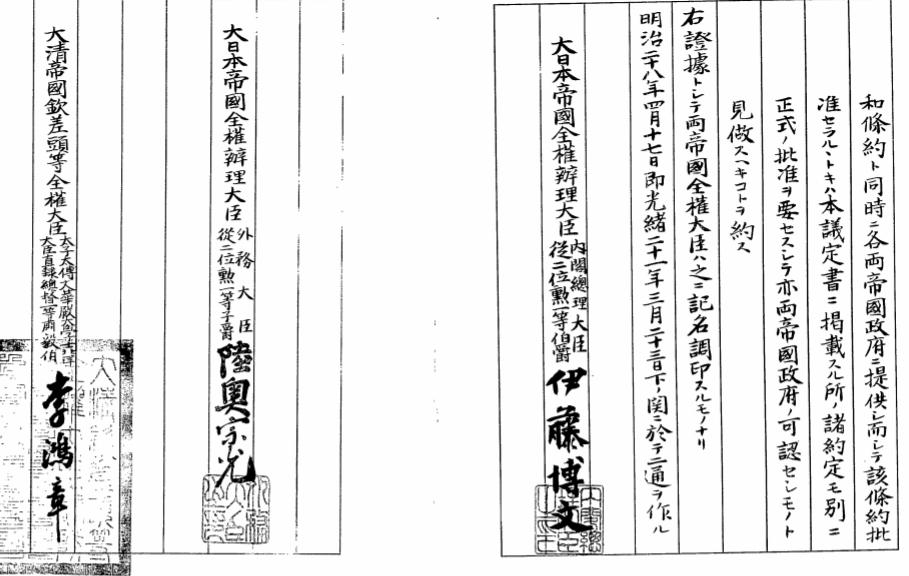 和條約ト同時ニ各両帝國政府ニ提供シ而シテ該條約批
准セラルヽトキハ本議定書ニ掲載スル所ノ諸約定モ別ニ
正式ノ批准ヲ要セスシテ亦両帝國政府ノ可認セシモノト
見做スヘキコトヲ約ス
右證據トシテ両帝國全權大臣ハ之ニ記名調印スルモノナリ
明治二十八年四月十七日即光緒二十一年三月二十三日下ノ関ニ於テ二通ヲ作ル
大日本帝國全權辨理大臣
内閣總理大臣
從二位勲一等伯爵
伊藤博文
大日本帝國全權辨理大臣
外務大臣
從二位勲一等子爵
陸奥宗光
大清帝國欽差頭等全權大臣
太子太傅文華殿大學士
大臣直隸總督一等肅毅伯
李鴻章